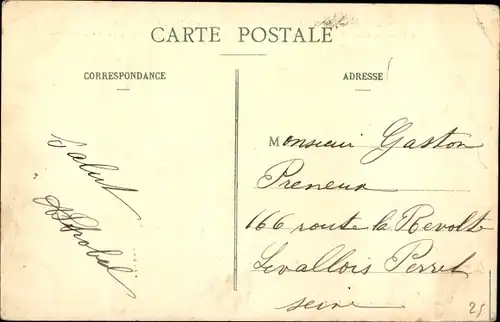 CARTE POSTALE
CORRESPONDANCE
ADRESSE
Salut
Monsieur Gaston
Preneux
166 route la Revolte
Levallois Perret
Seine
25